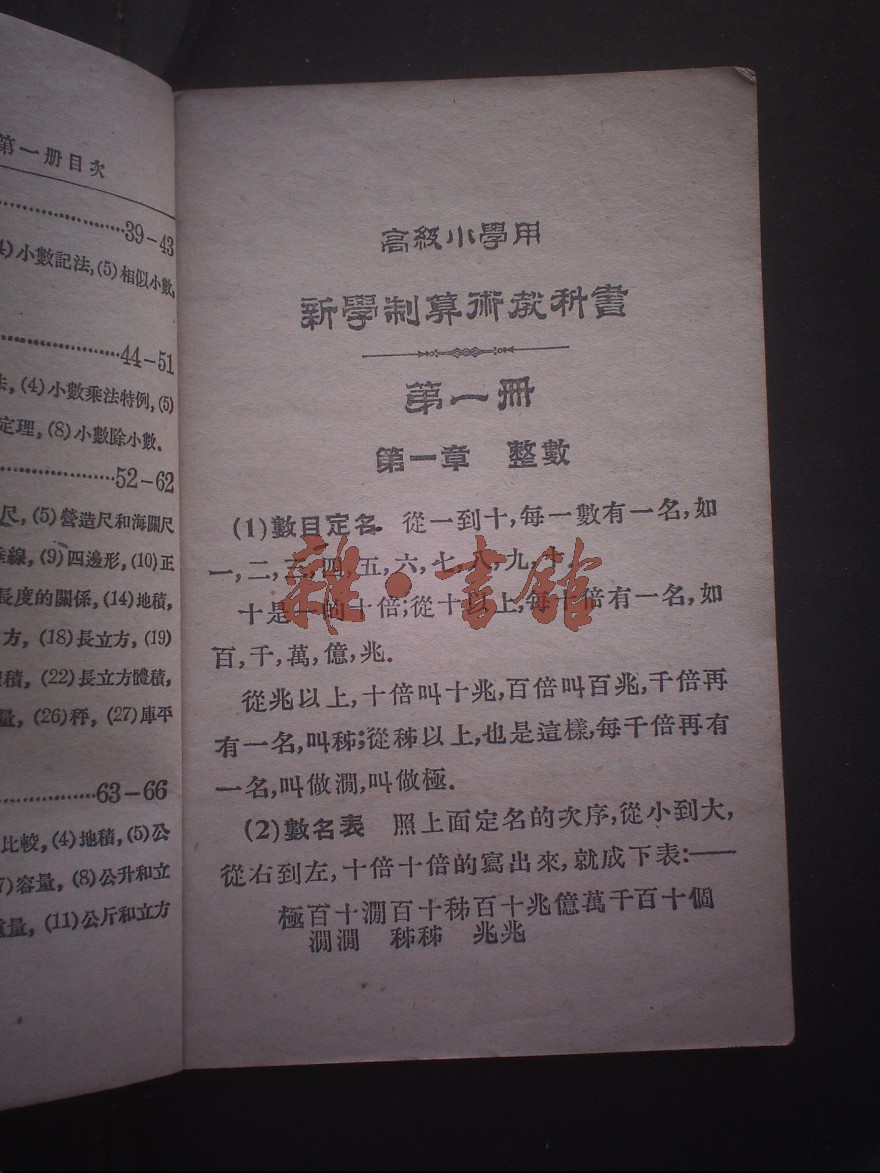 第一册目次
39-43
4)小數記法,(5)相似小數,
44-51
法,(4)小數乘法特例,(5)
定理,(8)小數除小數.
52-62
尺,(5)營造尺和海關尺
線,(9)四邊形,(10)正
長度的關係,(14)地積,
方,(18)長立方,(19)
積,(22)長立方體積,
量,(26)秤,(27)庫平
63-66
比較,(4)地積,(5)公
7)容量,(8)公升和立
重量,(11)公斤和立方
高級小學用
新學制算術教科書
第一冊
第一章 整數
(1)數目定名 從一到十,每一數有一名,如
一,二,三,四,五,六,七,八,九,十.
十是一的十倍;從十以上,每十倍有一名,如
百,千,萬,億,兆.
從兆以上,十倍叫十兆,百倍叫百兆,千倍再
有一名,叫秭;從秭以上,也是這樣,每千倍再有
一名,叫做澗,叫做極.
(2)數名表 照上面定名的次序,從小到大,
從右到左,十倍十倍的寫出來,就成下表:——
極百十澗百十秭百十兆億萬千百十個
澗澗 秭秭 兆兆
雜·書館